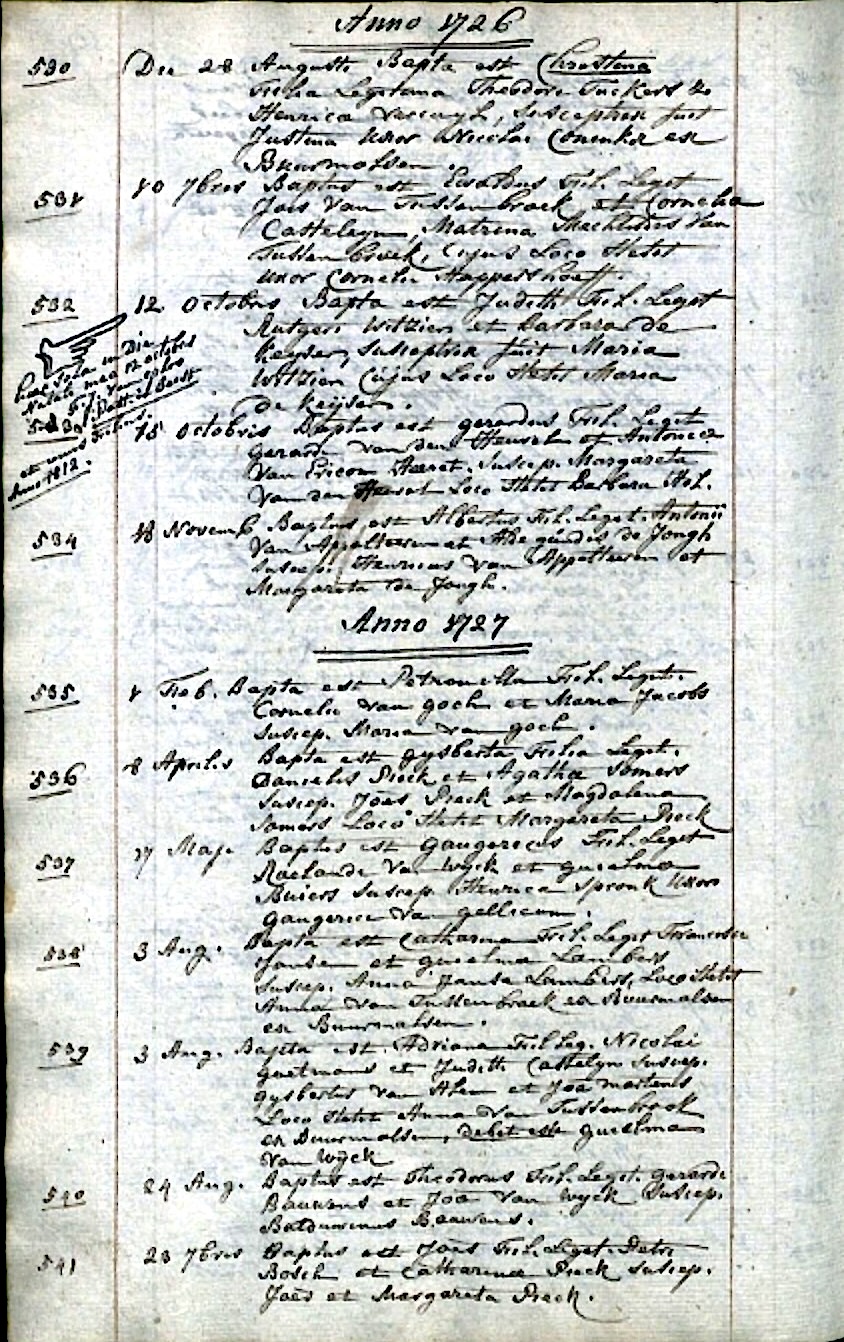 Anno 1726
530 Die 28 Augusti Bapta est Christina
Filia Legitima Theodori Tuckers &
Henrica Vercuyl, Susceptrix fuit
Justina Uxor Nicolai ex
Buurmalsen.
531 10 7bris Baptus est Fil. Leget
Jois Van Tussenbroek et Cornelia
Casteleyn, Matrina Mechtildis Van
Tussenbroek, Cujus Loco Stetit
uxor Cornelii
532 12 Octobris Bapta est Judith Fil. Leget
Rutgeri Witzier et Barbara de
Keyser, Susceptrix fuit Maria
Witzier Cujus Loco Stetit Maria
de Keyser.
in Die
12 octobris
et
Anno 1812.
533 15 octobris Baptus est gerardus Fil. Leget
gerardi van den Heuvel et Antonia
Van Ericom Suscep. Margareta
Van den Heuvel Loco Stetit Barbara
534 18 Novemb Baptus est Albertus Fil. Leget. Antonii
Van Appelteren et de Jongh
Suscep. Henricus Van Appelteren et
Margareta de Jongh.
Anno 1727
535 1 Feb. Bapta est Petronilla Fil. Leget.
Cornelii Van goch et Maria Jacobs
Suscep. Maria van goch.
536 8 Aprilis Bapta est gysberta Filia Leget.
Danielis Pieck et Agatha Somers
Suscep. Joes Pieck et Magdalena
Somers Loco Stetit Margareta Pieck
537 17 Maji Baptus est Gaugericus Fil. Leget
Roelandi Van Wyck et guielma
Buiers Suscep. Henrica Spronk Uxor
Gaugerici Van gellicum.
538 3 Aug. Bapta est Catharina Fil. Leget Francisci
Jansen et guielma Lambers
Suscep. Anna Lambers, Loco Stetit
Anna Van Tussenbroek ex Buurmalsen
ex Buurmalsen.
539 3 Aug. Bapta est Adriana Fil Leg. Nicolai
et Judith Castelyn Suscep.
gysbertus Van et Joa Martens
Loco Stetit Anna Van Tussenbroek
ex Buurmalsen, debet esse guielma
Van Wyck
540 24 Aug. Baptus est Theodorus Fil. Leget. gerardi
Bauwens et Joa Van Wyck Suscep.
Balduwinus Bauwens.
541 23 7bris Baptus est Joes Fil. Leget. Petri
Bosch et Catharina Pieck Suscep.
Joes et Margareta Pieck.